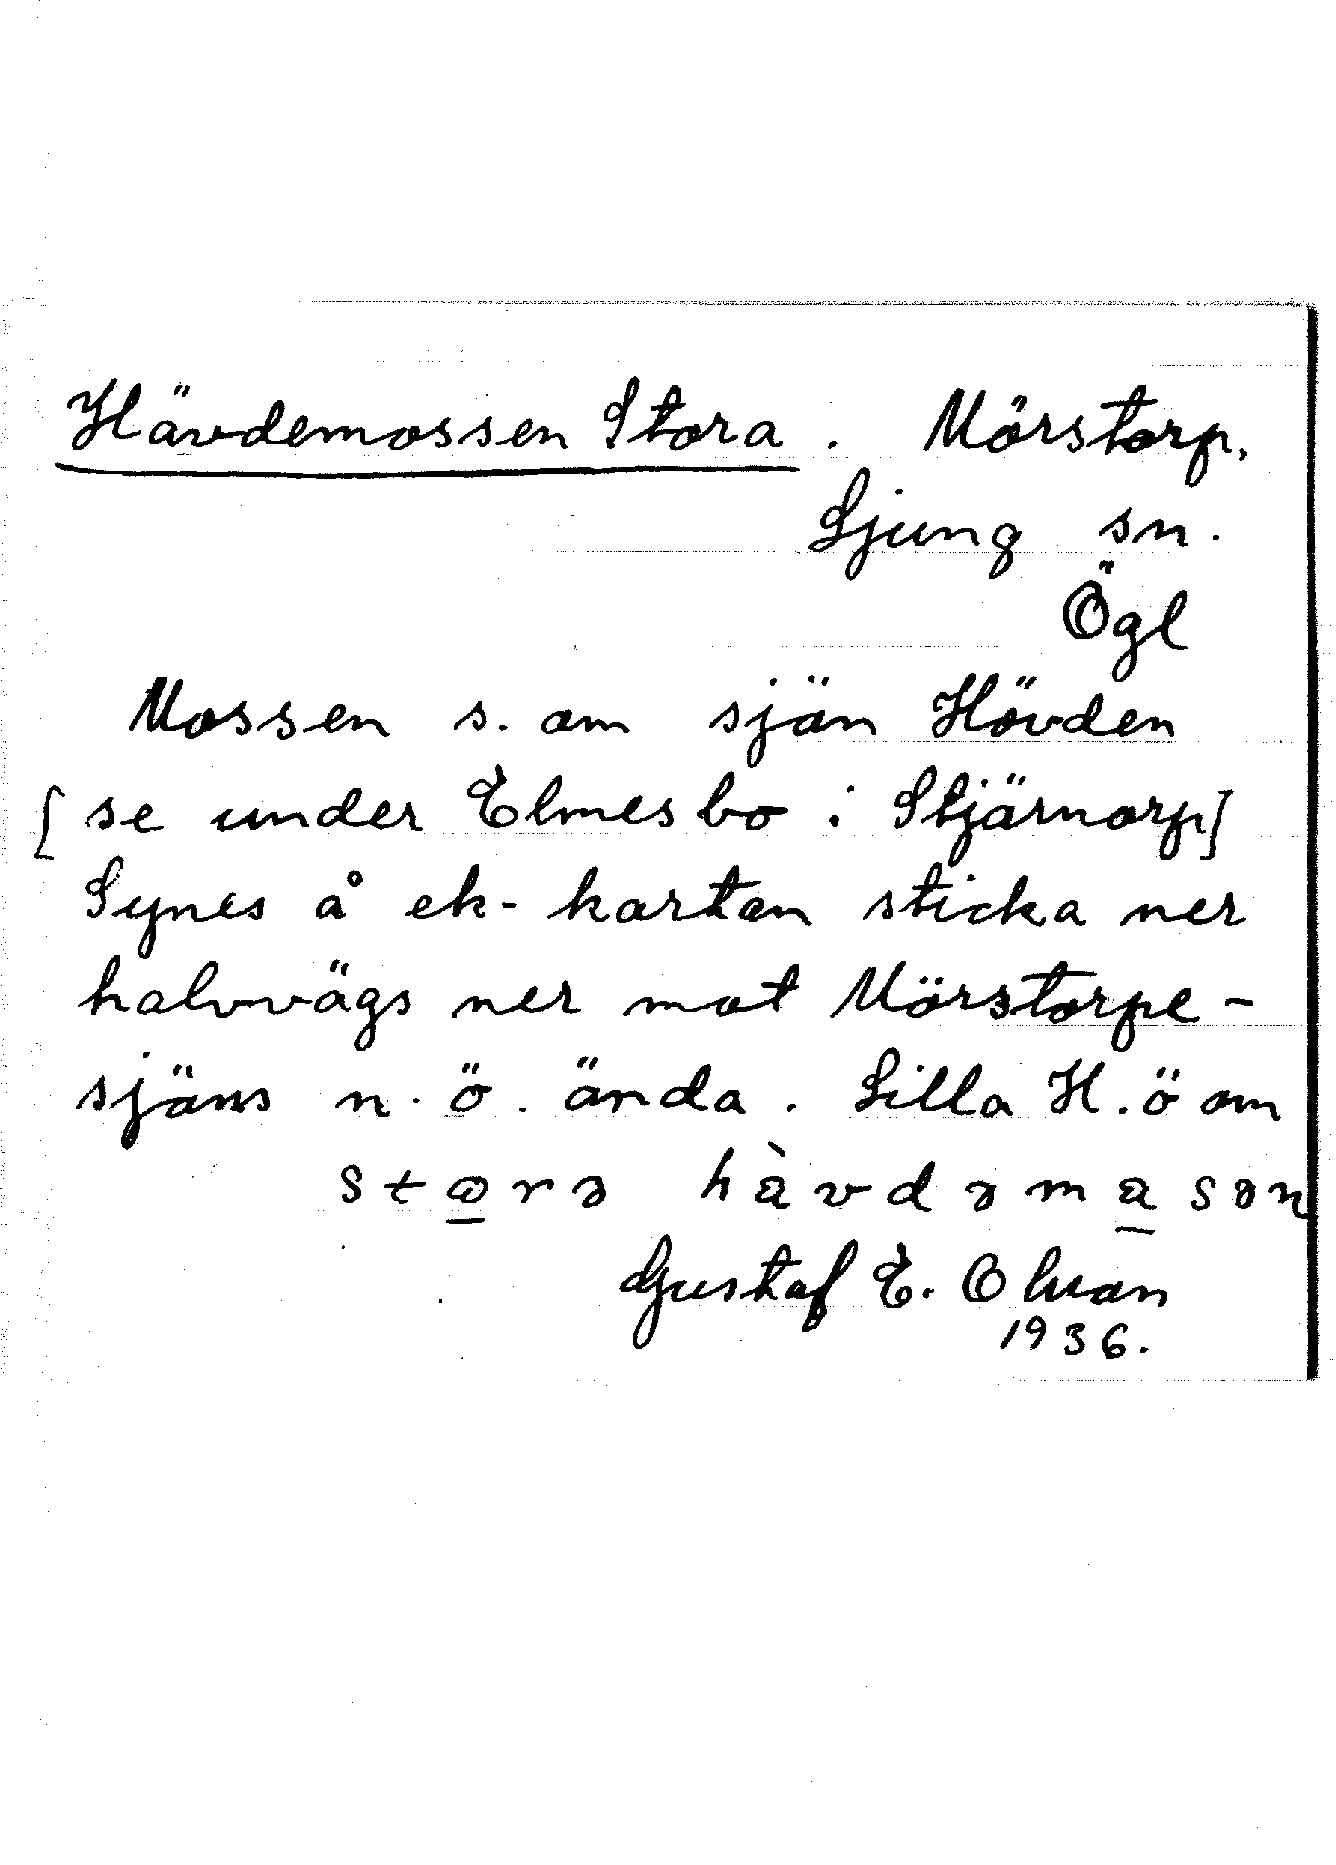 Hävdemossen Stora. Mörstorp,
Ljung sn.
Ögl
Mossen s. om sjön Hövden
[se under Elmesbo i Stjärnorp]
Synes å ek-kartan sticka ner
halvvägs ner mot Mörstorpe-
sjöns n.ö. ända. Lilla H. ö om
Gustaf E. Olsson
1936.